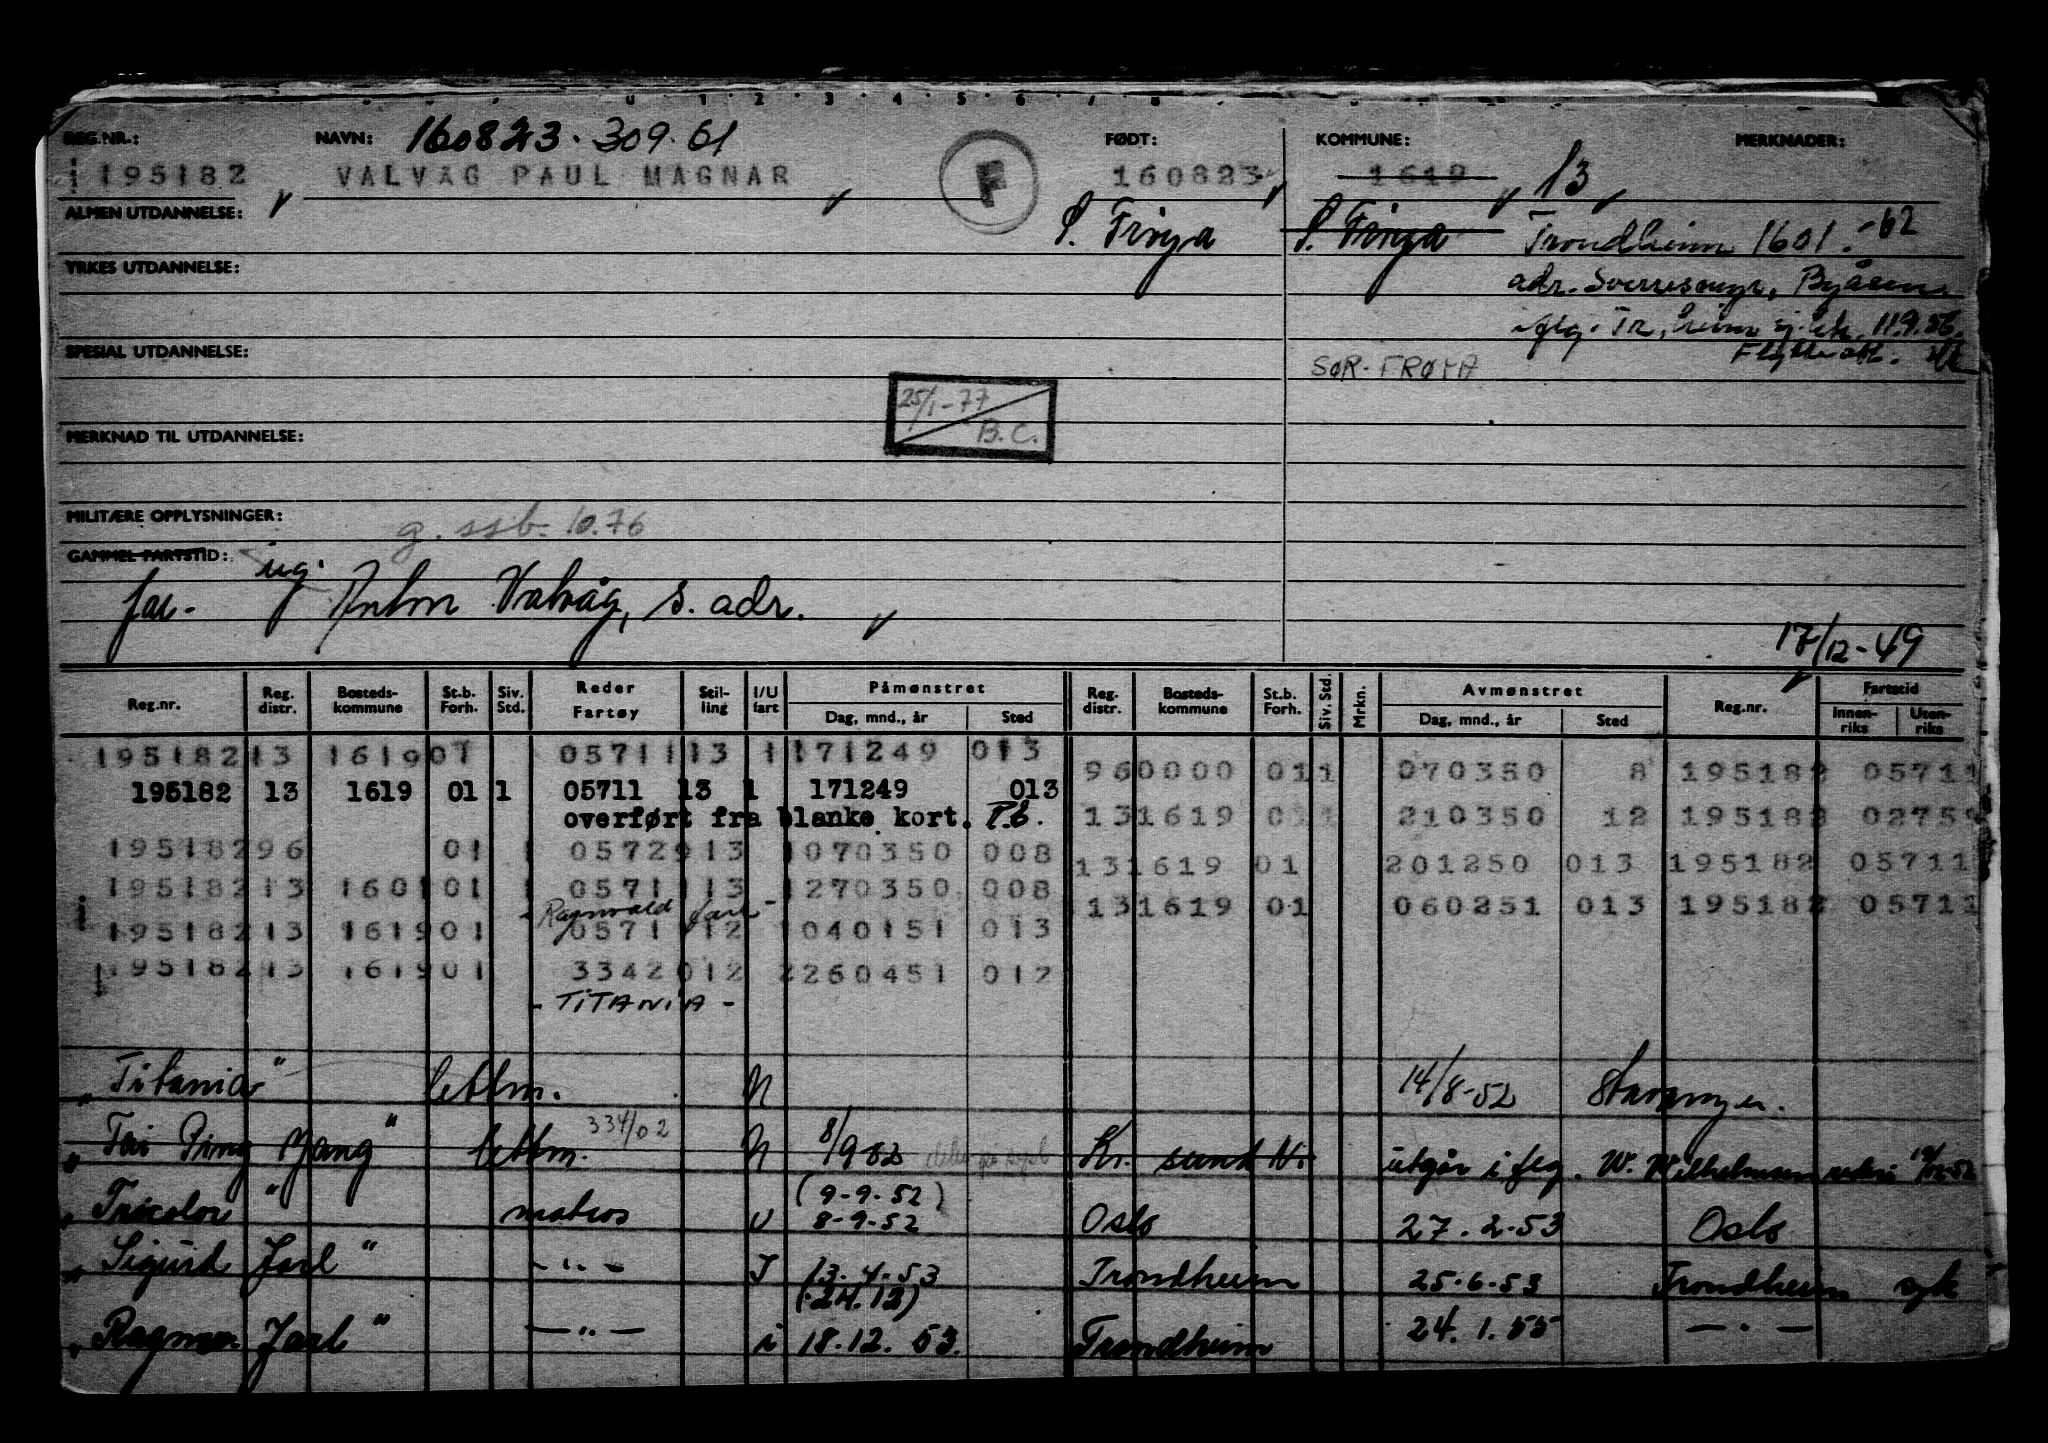 REG.NR.: NAVN: 160823.309.61 FØDT: KOMMUNE: MERKNADER:
195182 VALVÅG PAUL MAGNAR F 160823 1619 13
ALMEN UTDANNELSE: S. Frøya S. Frøya Trondheim 1601.-62
YRKES UTDANNELSE: adr. Sverresmyr, Byåsen
iflg. Tr.heim sj. 11.9.56.
SPESIAL UTDANNELSE: Flytteatt.
SØR-FRØYA
25/1-77
B.C.
MERKNAD TIL UTDANNELSE:
MILITÆRE OPPLYSNINGER: g. ssb. 10.76
GAMMEL FARTSTID: ug.
far- Anton Valvåg, s. adr.
17/12-49
Reg.nr. Reg. distr. Bosteds-kommune St.b. Forh. Siv. Std. Reder Fartøy Stil-ling I/U fart Påmønstret Reg. distr. Bosteds-kommune St.b. Forh. Siv. Std. Mrkn. Avmønstret Reg.nr. Fartstid
Dag, mnd., år Sted Dag, mnd., år Sted Innen-riks Uten-riks
195182 13 1619 01 05711 13 1 171249 013
960000 011 070350 8 195182 05711
195182 13 1619 01 1 05711 13 1 171249 013
overført fra blanke kort. P.E. 131619 011 210350 12 195182 0275
195182 96 01 1 05729 13 1 070350 008
131619 01 201250 013 195182 05711
195182 13 1601 01 1 05711 13 1 270350 008
- Ragnvald Jarl - 131619 01 060251 013 195182 05711
195182 13 1619 01 05711 12 1 040151 013
195182 13 1619 01 33420 12 2 260451 012
- TITANIA -
"Titania" lettm. N 14/8-52 Stavanger.
"Tai Ping Yang" lettm. 334/02 N 8/9 52 Kr. sund N. utgår iflg. W. Wilhelmsen
(9-9-52)
"Tricolor" matros U 8-9-52 Oslo 27.2.53 Oslo
"Sigurd Jarl" -"- I 13.4.53 Trondheim 25.6.53 Trondheim syk
(24.12)
"Ragnv. Jarl" -"- i 18.12.53. Trondheim 24.1.55 -"-